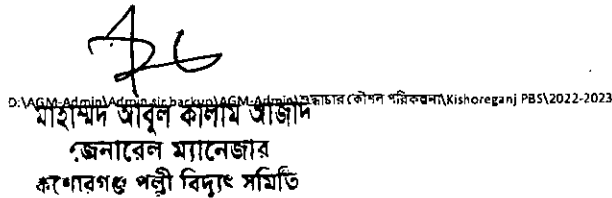 D:\AGM-Admin\Admin sir backup\AGM-Admin\শুদ্ধাচার কৌশল পরিকল্পনা\Kishoreganj PBS\2022-2023
মোহাম্মদ আবুল কালাম আজাদ
জেনারেল ম্যানেজার
কিশোরগঞ্জ পল্লী বিদ্যুৎ সমিতি